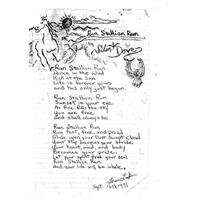 Run Stallion Run
Run Stallion Run
Dance in the Wind
Kick at the Sun
Life is forever yours
and has only just begun.
Run Stallion Run
Sunset in your eye
As fire fills the sky
You are free
and shall always be.
Run Stallion Run
Run fast, free, and proud
Glide upon your
Your
your heart, mind, and body
Becomes your pride.
Let your spirit free your soul
Run Stallion Run
and your life will be whole.
Sept 1991